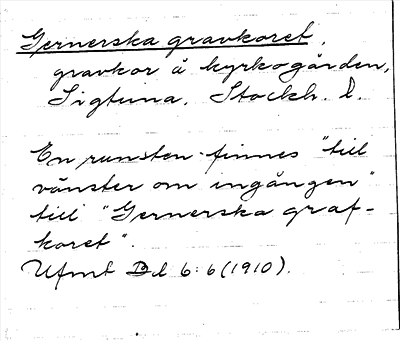 Gernerska gravkoret,
gravkor å kyrkogården,
Sigtuna, Stockh. l.
En runsten finnes "till
vänster om ingången"
till "Gernerska graf-
koret".
Ufmt Bd 6:6 (1910).